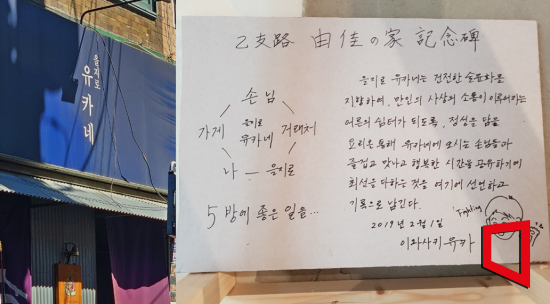 을지로
유카네
乙支路 由佳の家 記念碑
손님
가게 을지로 유카네 거래처
나 — 을지로
5방에 좋은 일을...
을지로 유카네는 건전한 술문화를
지향하며, 만인의 사상과 소통이 이루어지는
어른의 쉼터가 되도록, 정성을 담은
요리를 통해 유카네에 오시는 손님들과
즐겁고 맛나고 행복한 시간을 공유하기에
최선을 다하는 것을 여기에 선언하고
기록으로 남긴다.
2019년 2월 1일
이와사키 유카
Fighting